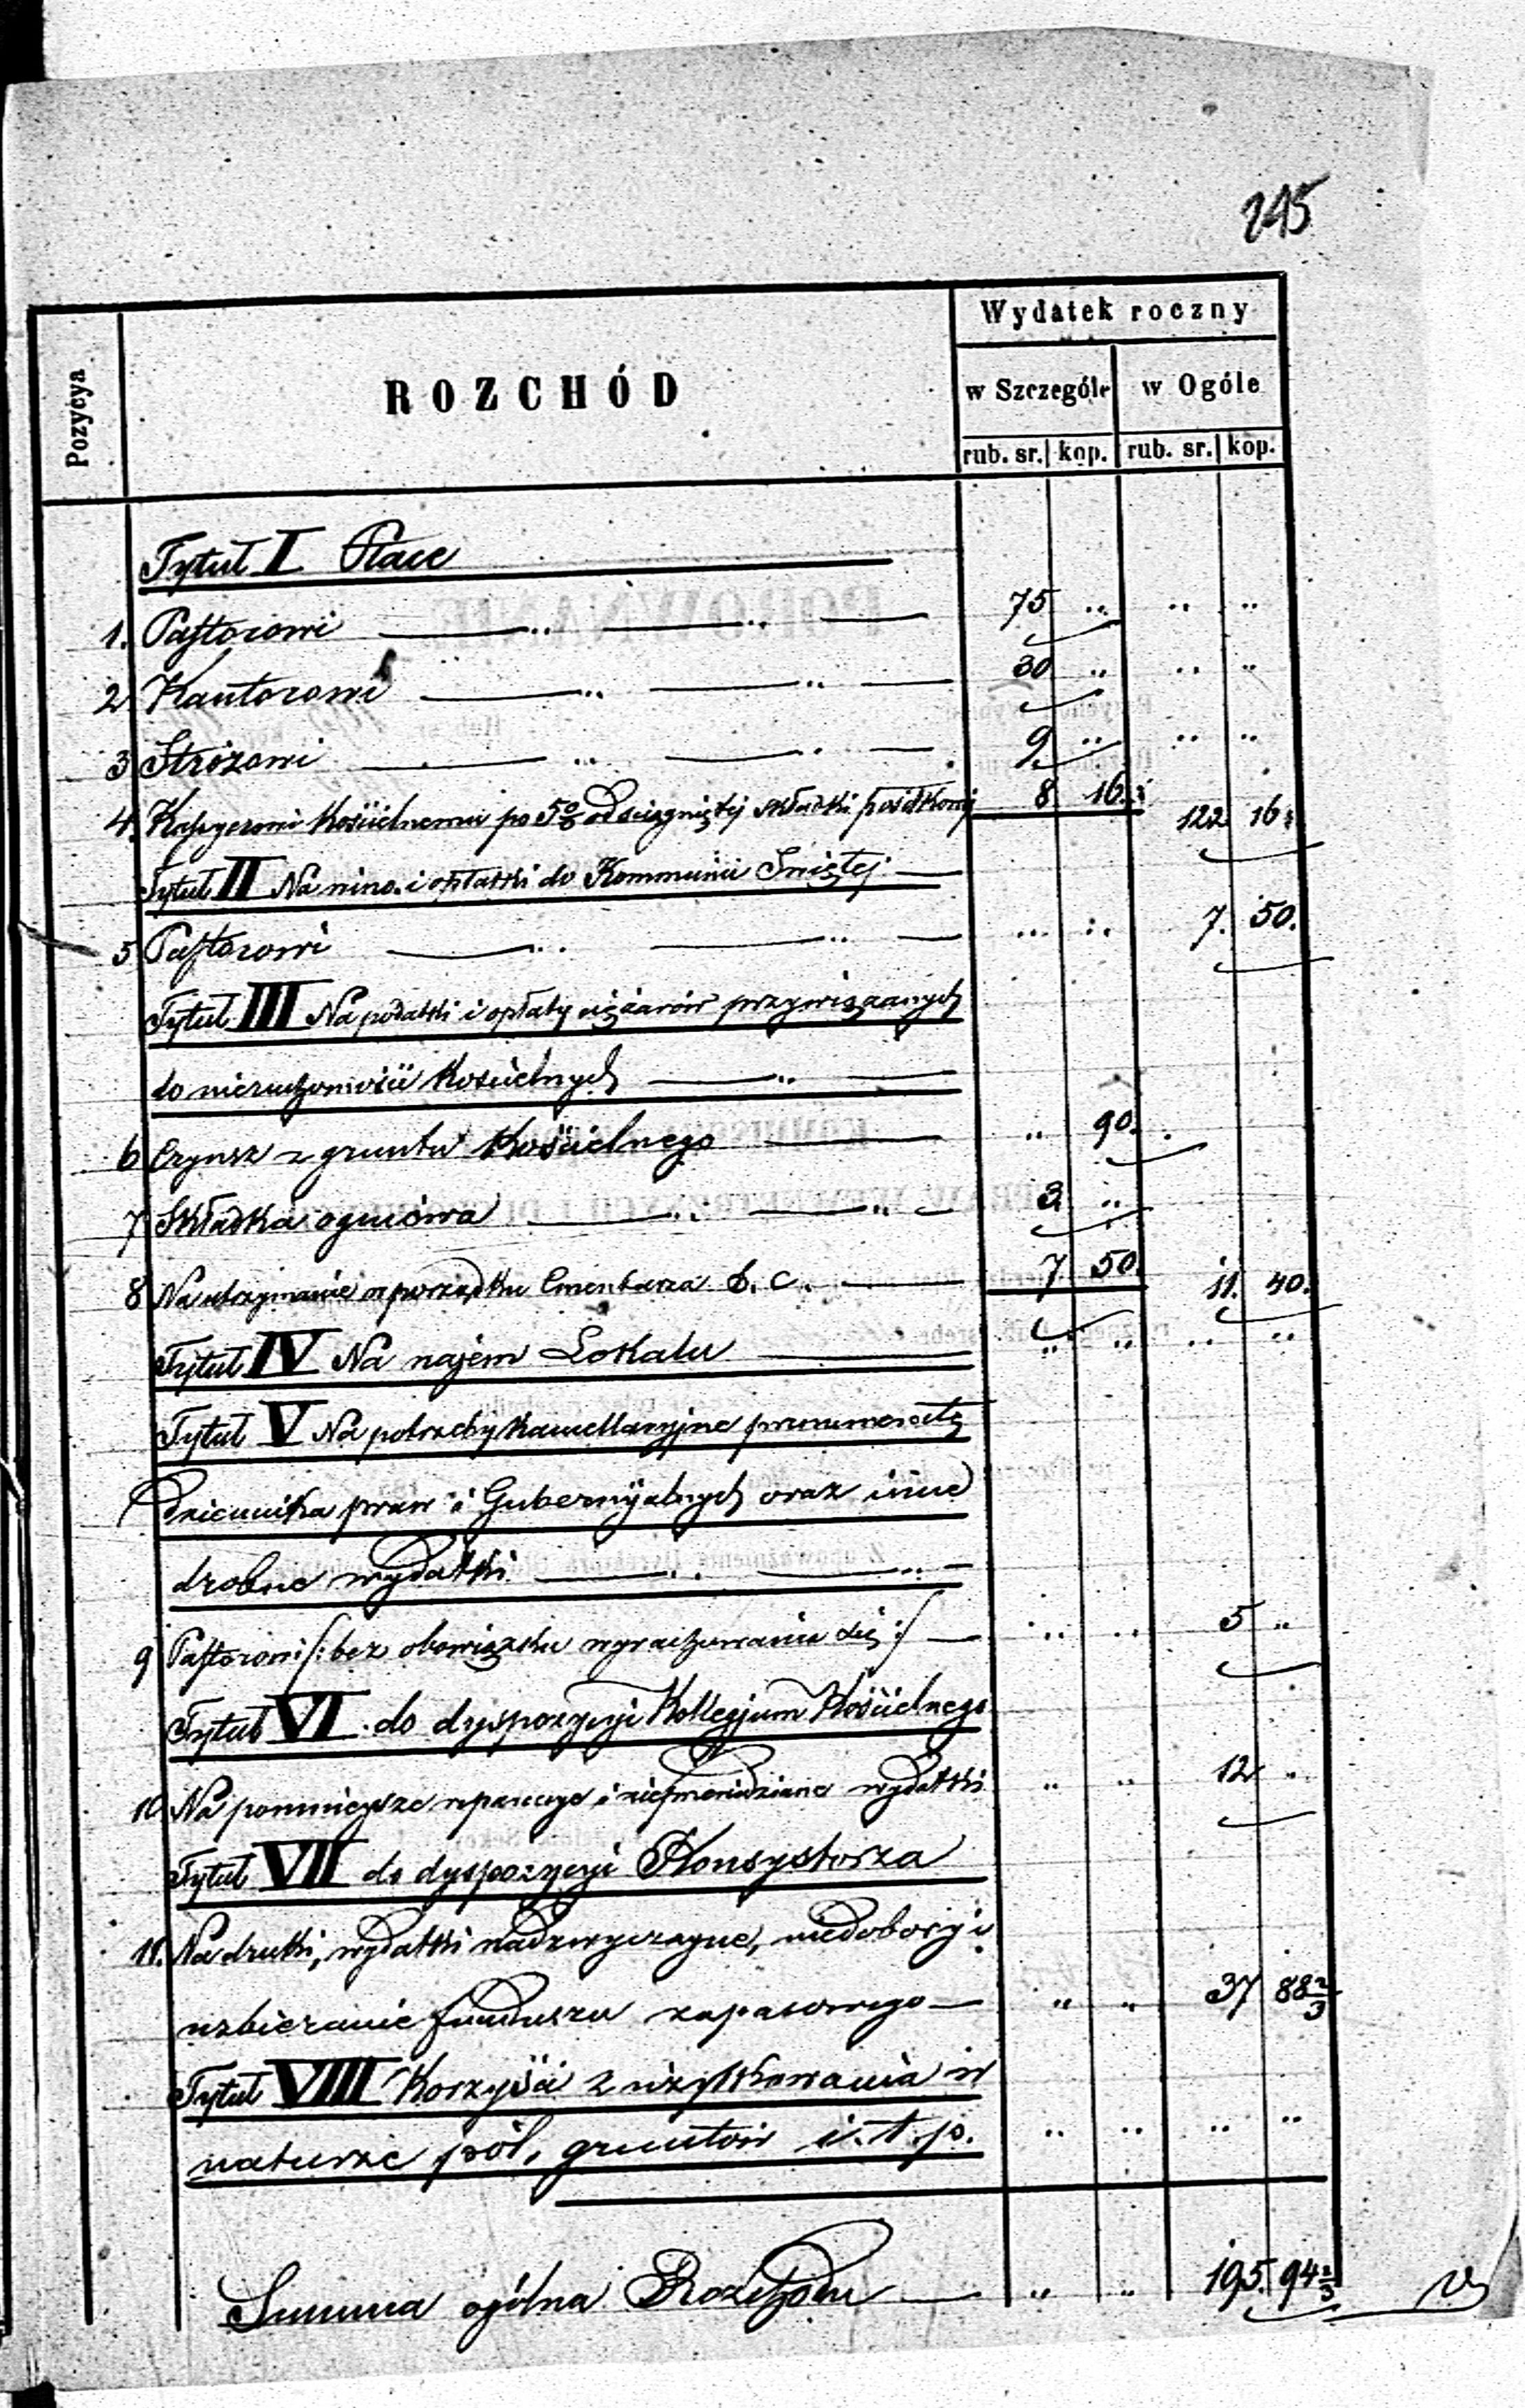 245
Wydatek roczny
Pozycya
ROZCHÓD
w Szczególe w Ogóle
rub. sr. kop. rub. sr. kop.
Tytuł I Płace
1. Pastorowi 75 „ „ „
2 Kantorowi 30 „ „ „
3 Stróżowi 9 „ „ „
4. Kassyerowi Kościelnemu po 5% od ściągniętej składki 8 16 122 16
Tytuł II Na wino i opłatki do Kommunii Świętej
5 Pastorowi „ „ 7. 50.
Tytuł III Na podatki i opłaty ciężarów przywiązanych
do nieruchomości Kościelnych
6 Czynsz z gruntu Kościelnego „ 90.
7 Składka ogniowa 3 „
8 Na utrzymanie w porządku Cmentarza 7 50. 11. 40.
Tytuł IV Na najem Lokalu „ „ „ „
Tytuł V Na potrzeby kancellaryjne prenumeratę
Dziennika praw i Gubernyalnych oraz inne
drobne wydatki
9 Pastorowi /: bez obowiązku wyrachowania się :/ „ „ 5 „
Tytuł VI do dyspozycyi Kollegjum Kościelnego
10 Na pomniejsze reparacye i nieprzewidziane wydatki „ „ 12 „
Tytuł VII do dyspozycyi Konsystorza
11. Na druki, wydatki nadzwyczajne, niedobory i
uzbieranie funduszu zapasowego „ „ 37 88 2/3
Tytuł VIII Korzyści z użytkowania w
naturze pól, gruntów i. t. p. „ „ „ „
Summa ogólna Rozchodu „ „ 195. 94 2/3